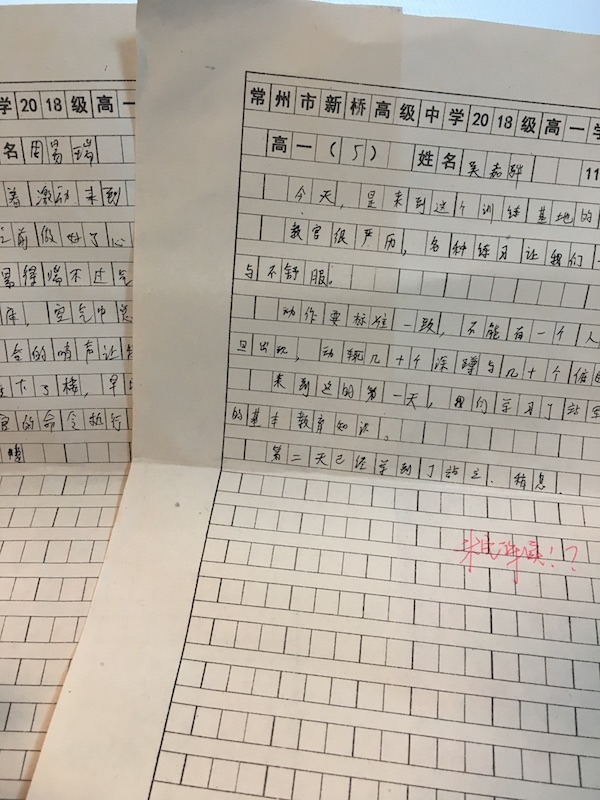 学2018级高一
名 周易瑞
着激动来到
之前做好了心
累得喘不过气
年，空气中总
合的哨声让
下了楼，早
官的命令执行
常州市新桥高级中学2018级高一学
高一（5） 姓名 吴嘉骅 11
今天，是来到这个训练基地的
教官很严历，各种练习让我们
与不舒服。
动作要标准一致，不能有一个人
旦出现，动辄几十个深蹲与几十个俯
来到这的第一天，我们学习了站军
的基本教育知识。
第二天已经学到了站立、稍息、